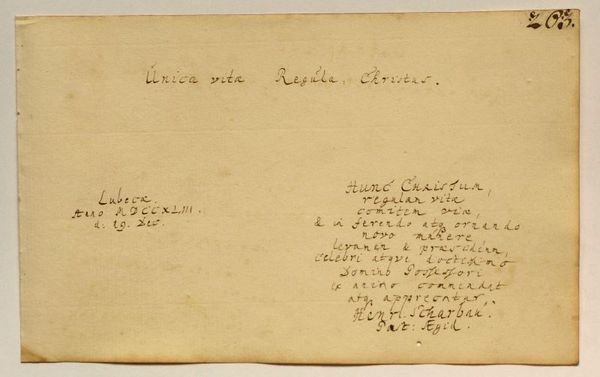 263.
Unica vitæ Regula, Christus.
Lubecæ.
Anno MDCCXLIII.
d. 19. Dec.
Hunc CHRISTUM,
regulam vitæ
comitem viæ,
& in ferendo atq ornando
novo munere
levamen & præsidium,
celebri atque doctissimo
Domino Possessori
ex animo commendat
atq apprecatur,
Henr. Scharbau.
Past: Ægid.